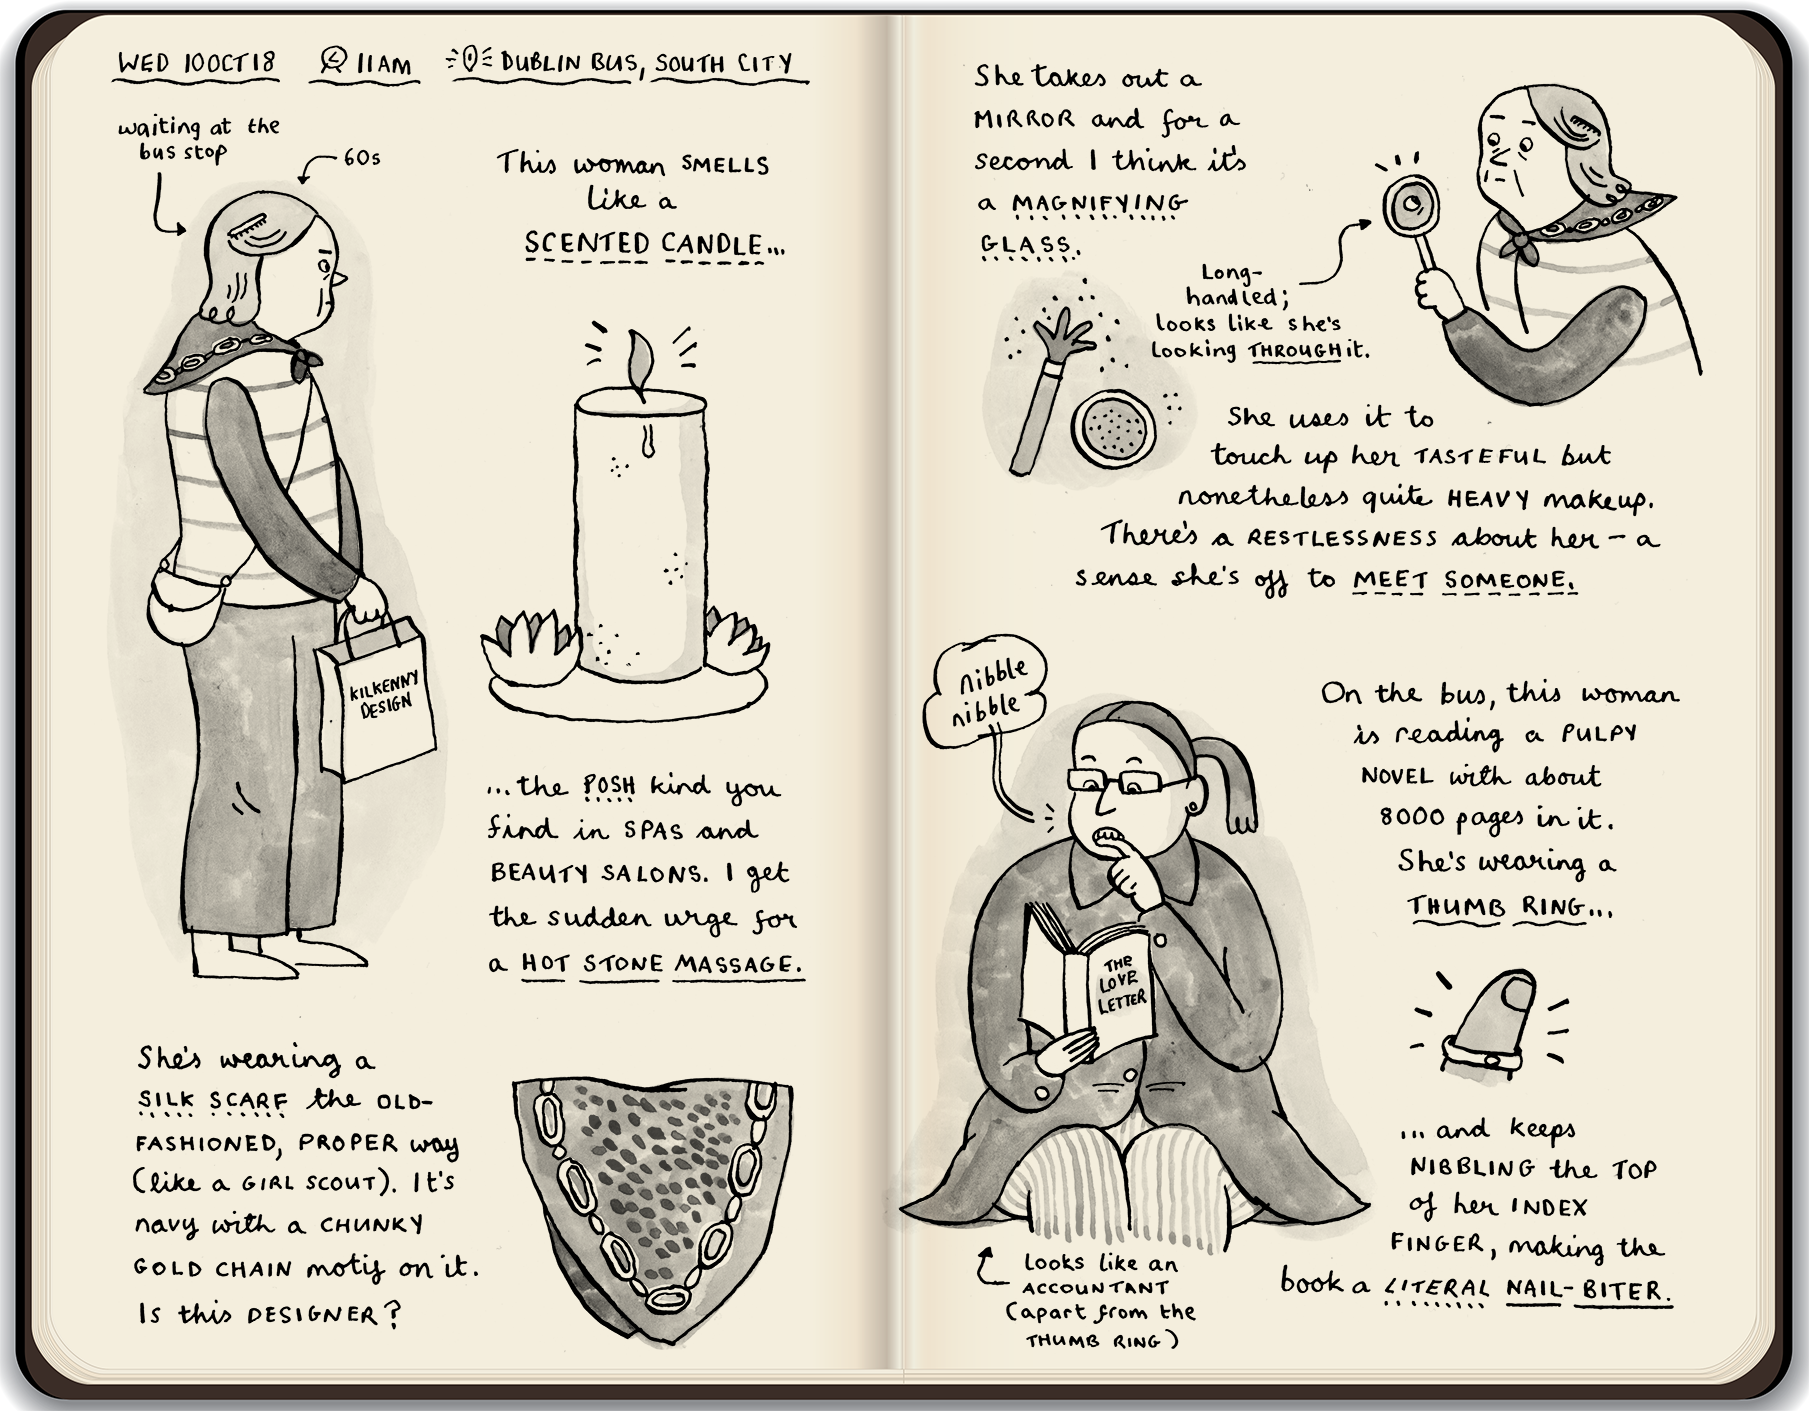 WED 10 OCT 18
11AM
DUBLIN BUS, SOUTH CITY
waiting at the
bus stop
60s
This woman SMELLS
like a
SCENTED CANDLE...
KILKENNY
DESIGN
...the POSH kind you
find in SPAS and
BEAUTY SALONS. I get
the sudden urge for
a HOT STONE MASSAGE.
She's wearing a
SILK SCARF the OLD-
FASHIONED, PROPER way
(like a GIRL SCOUT). It's
navy with a CHUNKY
GOLD CHAIN motif on it.
Is this DESIGNER?
She takes out a
MIRROR and for a
second I think it's
a MAGNIFYING
GLASS.
Long-
handled;
looks like she's
looking THROUGH it.
She uses it to
touch up her TASTEFUL but
nonetheless quite HEAVY makeup.
There's a RESTLESSNESS about her – a
sense she's off to MEET SOMEONE.
nibble
nibble
On the bus, this woman
is reading a PULPY
NOVEL with about
8000 pages in it.
She's wearing a
THUMB RING...
THE
LOVE
LETTER
...and keeps
NIBBLING the TOP
of her INDEX
FINGER, making the
book a LITERAL NAIL-BITER.
Looks like an
ACCOUNTANT
(apart from the
THUMB RING)